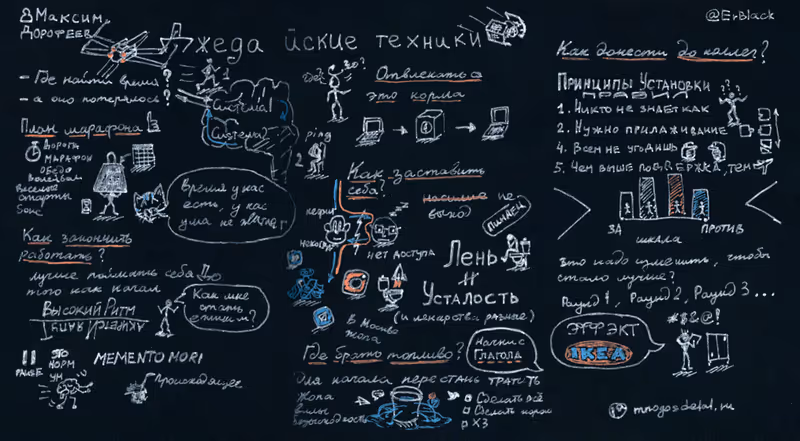 Максим
Дорофеев
Джедайские техники
@ErBlack
- Где найти время?
- а оно потерялось?
План марафона
ворота
марафон
обеда
Веселые
старты
Бонус
Система 1
Система 2
1
2
Время у нас
есть, у нас
ума не хватает
Как закончить
работать?
лучше поймать себя до
того как начал
Высокий Ритм
Как мне
стать
Pause
это
норм
ум
MEMENTO MORI
Происходящее
Отвлекаться
это норма
ping
Как заставить
себя?
насилие не
выход
Пинаем
некогда
нет доступа
Лень
≠
Усталость
(и лекарства разные)
В Москве
жопа
Где брать топливо?
Начни с
Глагола
Для начала перестань тратить
жопа
вилы
безысходность
Сделать всё
Сделать норм
ХЗ
Как донести до коллег?
Принципы Установки
правил
1. Никто не знает как
2. Нужно прилаживание
4. Всем не угодишь
5. Чем выше поддержка, тем
За
шкала
Против
Что надо изменить, чтобы
стало лучше?
Раунд 1, Раунд 2, Раунд 3 ...
Эффект
IKEA
#$&@!
mnogosdelal.ru